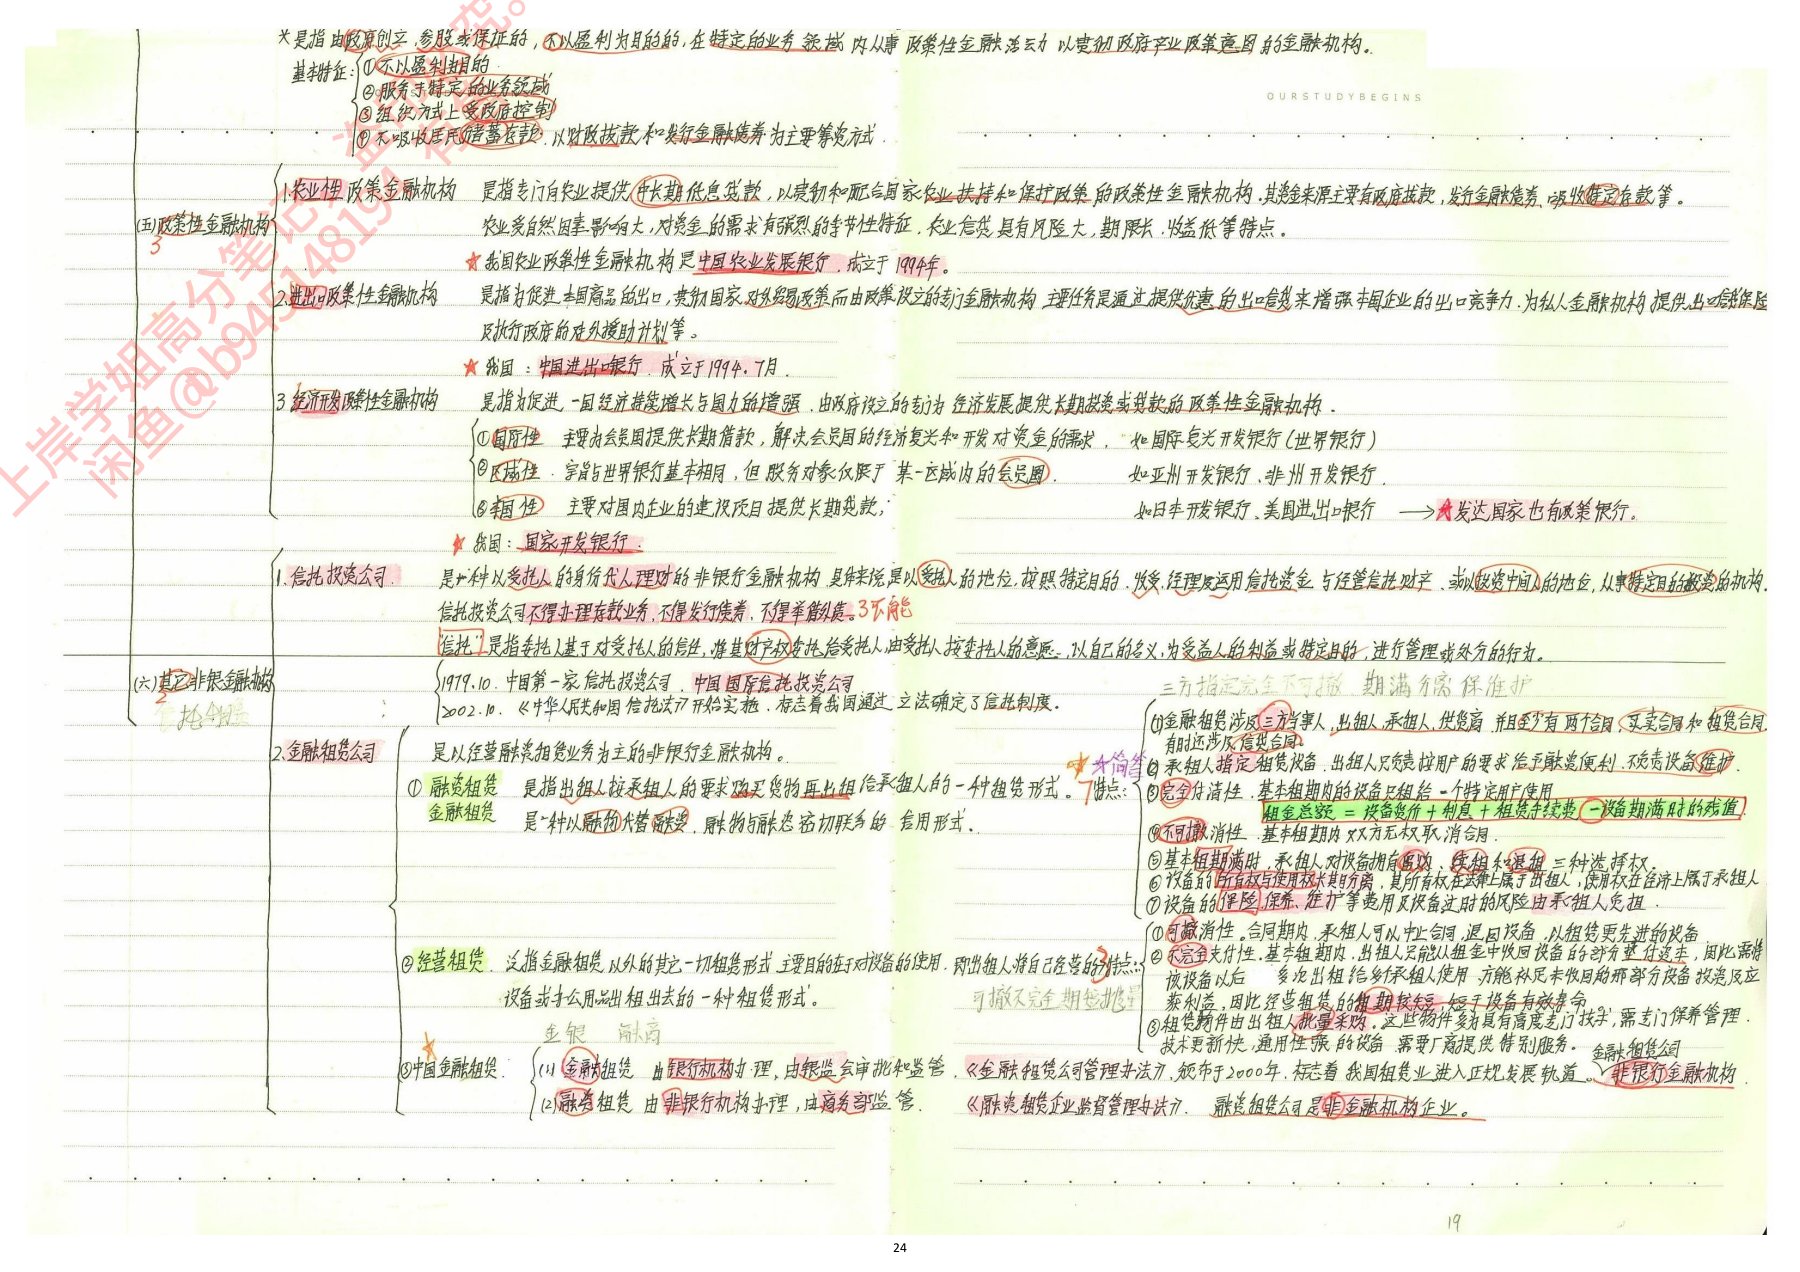 *是指由政府创立、参股或保证的,不以盈利为目的的,在特定的业务领域内从事政策性金融活动以贯彻政府产业政策意图的金融机构。
基本特征:①不以盈利为目的
②服务于特定的业务领域
③组织方式上受政府控制
④不吸收居民储蓄存款,以财政拨款和发行金融债券为主要筹资方式.
OURSTUDYBEGINS
(五)政策性金融机构
3
1.农业性政策金融机构 是指专门向农业提供中长期低息贷款,以贯彻和配合国家农业扶持和保护政策的政策性金融机构.其资金来源主要有政府拨款,发行金融债券、吸收特定存款等。
农业受自然因素影响大,对资金的需求有强烈的季节性特征,农业信贷具有风险大,期限长,收益低等特点。
★我国农业政策性金融机构是中国农业发展银行,成立于1994年。
2.进出口政策性金融机构 是指为促进本国商品的出口,贯彻国家对外贸易政策而由政府设立的专门金融机构 主要任务是通过提供优惠的出口信贷来增强本国企业的出口竞争力,为私人金融机构提供出口信贷保险
及执行政府的对外援助计划等。
★我国:中国进出口银行.成立于1994.7月.
3 经济开发政策性金融机构 是指为促进一国经济持续增长与国力的增强,由政府设立的专门为经济发展提供长期投资或贷款的政策性金融机构.
①国际性 主要为会员国提供长期借款,解决会员国的经济复兴和开发对资金的需求, 如国际复兴开发银行(世界银行)
②区域性.宗旨与世界银行基本相同,但服务对象仅限于某一区域内的会员国. 如亚州开发银行、非州开发银行.
③本国性 主要对国内企业的建设项目提供长期贷款; 如日本开发银行、美国进出口银行 →★发达国家也有政策银行。
★我国:国家开发银行.
(六)其它非银金融机构
2
1.信托投资公司. 是一种以受托人的身份代人理财的非银行金融机构 具体来说,是以受托人的地位,按照特定目的,收受、经理及运用信托资金与经营信托财产、或以投资中间人的地位,从事特定目的投资的机构.
信托投资公司不得办理存款业务,不得发行债券,不得举借外债。3不能
“信托”是指委托人基于对受托人的信任,将其财产权委托给受托人,由受托人按委托人的意愿,以自己的名义,为受益人的利益或特定目的,进行管理或处分的行为。
1979.10.中国第一家信托投资公司.中国国际信托投资公司
2002.10.《中华人民共和国信托法》开始实施,标志着我国通过立法确定了信托制度.
2.金融租赁公司 是以经营融资租赁业务为主的非银行金融机构。
①融资租赁 是指出租人按承租人的要求购买货物再出租给承租人的一种租赁形式。
金融租赁 是一种以融物代替融资,融物与融资密切联系的信用形式.
三方指定完全不可撤 期满分离保维护
★简答
7特点:
(1)金融租赁涉及三方当事人,出租人、承租人、供货商 并且至少有两个合同,买卖合同和租赁合同
有时还涉及信贷合同.
② 承租人指定租赁设备.出租人只负责按用户的要求给予融资便利,不负责设备维护.
③完全付清性.基本租期内的设备只租给一个特定用户使用
租金总额=设备货价+利息+租赁手续费-设备期满时的残值
④不可撤消性.基本租期内双方无权取消合同.
⑤基本租期满时,承租人对设备拥有留购、续租和退租三种选择权.
⑥设备的所有权与使用权长期分离,其所有权在法律上属于出租人,使用权在经济上属于承租人
⑦设备的保险、保养、维护等费用及设备过时的风险由承租人负担.
②经营租赁.泛指金融租赁以外的其它一切租赁形式 主要目的在于对设备的使用.即出租人将自己经营的
设备或办公用品出租出去的一种租赁形式。
3特点:
可撤不完全期短批量
①可撤消性。合同期内,承租人可以中止合同,退回设备,以租赁更先进的设备
②不完全支付性.基本租期内,出租人只能从租金中收回设备的部分垫付资本,因此需将
该设备以后 多次出租给多个承租人使用 方能补足未收回的那部分设备投资及应
获利益,因此经营租赁的租期较短,短于设备有效寿命
③租赁物件由出租人批量采购.这些物件多为具有高度专门技术,需专门保养管理.
技术更新快,通用性强的设备 需要厂商提供特别服务。
金银 融商
③中国金融租赁.
(1)金融租赁 由银行机构办理,由银监会审批和监管.《金融租赁公司管理办法》,颁布于2000年.标志着我国租赁业进入正规发展轨道。金融租赁公司 非银行金融机构.
(2)融资租赁 由非银行机构办理,由商务部监管.《融资租赁企业监督管理办法》. 融资租赁公司是非金融机构企业。
19
24
上岸学姐高分笔记
闲鱼@b945148194